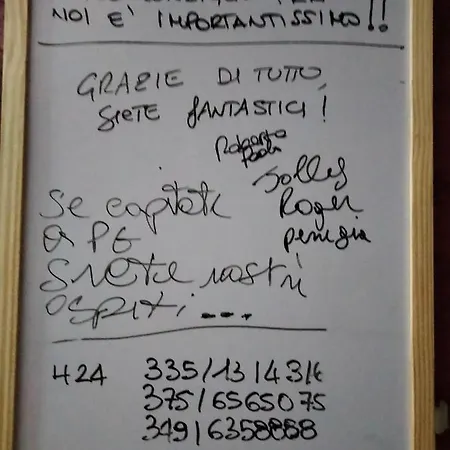 NOI E' IMPORTANTISSIMO!!
GRAZIE DI TUTTO,
SIETE FANTASTICI!
Roberto
Paola
Jolly
Roger
perugia
Se capitate
a PG
Siete nostri
ospiti...
H24 335/13143
375/6565075
349/6358858